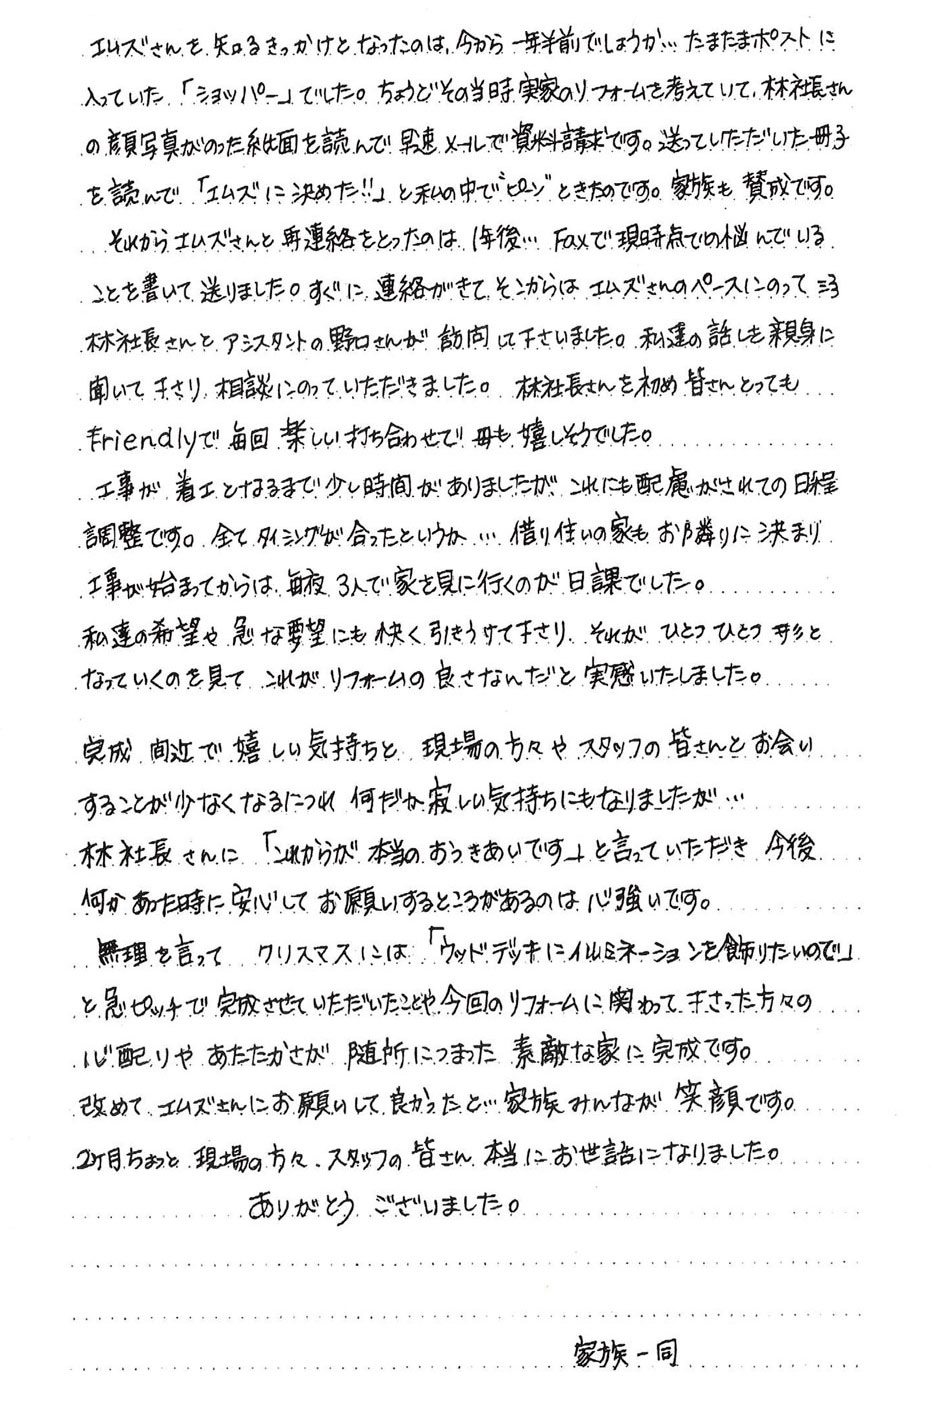 エムズさんを知るきっかけとなったのは、今から一年半前でしょうか… たまたまポストに
入っていた「ショッパー」でした。ちょうどその当時実家のリフォームを考えていて、林社長さん
の顔写真がのった紙面を読んで早速メールで資料請求です。送っていただいた冊子
を読んで「エムズに決めた!!」と私の中で"ピン"ときたのです。家族も賛成です。
それからエムズさんと再連絡をとったのは、1年後… Faxで現時点での悩んでいる
ことを書いて送りました。すぐに連絡がきて、そこからはエムズさんのペースにのって
林社長さんとアシスタントの野口さんが訪問して下さいました。私達の話しを親身に
聞いて下さり、相談にのっていただきました。林社長さんを初め皆さんとっても
friendlyで毎回楽しい打ち合わせで母も嬉しそうでした。
工事が着工となるまで少し時間がありましたが、これにも配慮がされての日程
調整です。全てタイミングが合ったというか… 借り住いの家もお隣りに決まり
工事が始まってからは、毎夜3人で家を見に行くのが日課でした。
私達の希望や急な要望にも快く引きうけて下さり、それがひとつひとつ形と
なっていくのを見て これがリフォームの良さなんだと実感いたしました。
完成間近で嬉しい気持ちと現場の方々やスタッフの皆さんとお会い
することが少なくなるにつれ何だか寂しい気持ちにもなりましたが…
林社長さんに「これからが本当のおつきあいです」と言っていただき 今後
何かあった時に安心してお願いするところがあるのは心強いです。
無理を言って クリスマスには「ウッドデッキにイルミネーションを飾りたいので」
と急ピッチで完成させていただいたことや今回のリフォームに関わって下さった方々の
心配りやあたたかさが随所につまった素敵な家に完成です。
改めて、エムズさんにお願いして良かったと… 家族みんなが笑顔です。
2ヶ月ちょっと現場の方々、スタッフの皆さん 本当にお世話になりました。
ありがとうございました。
家族一同